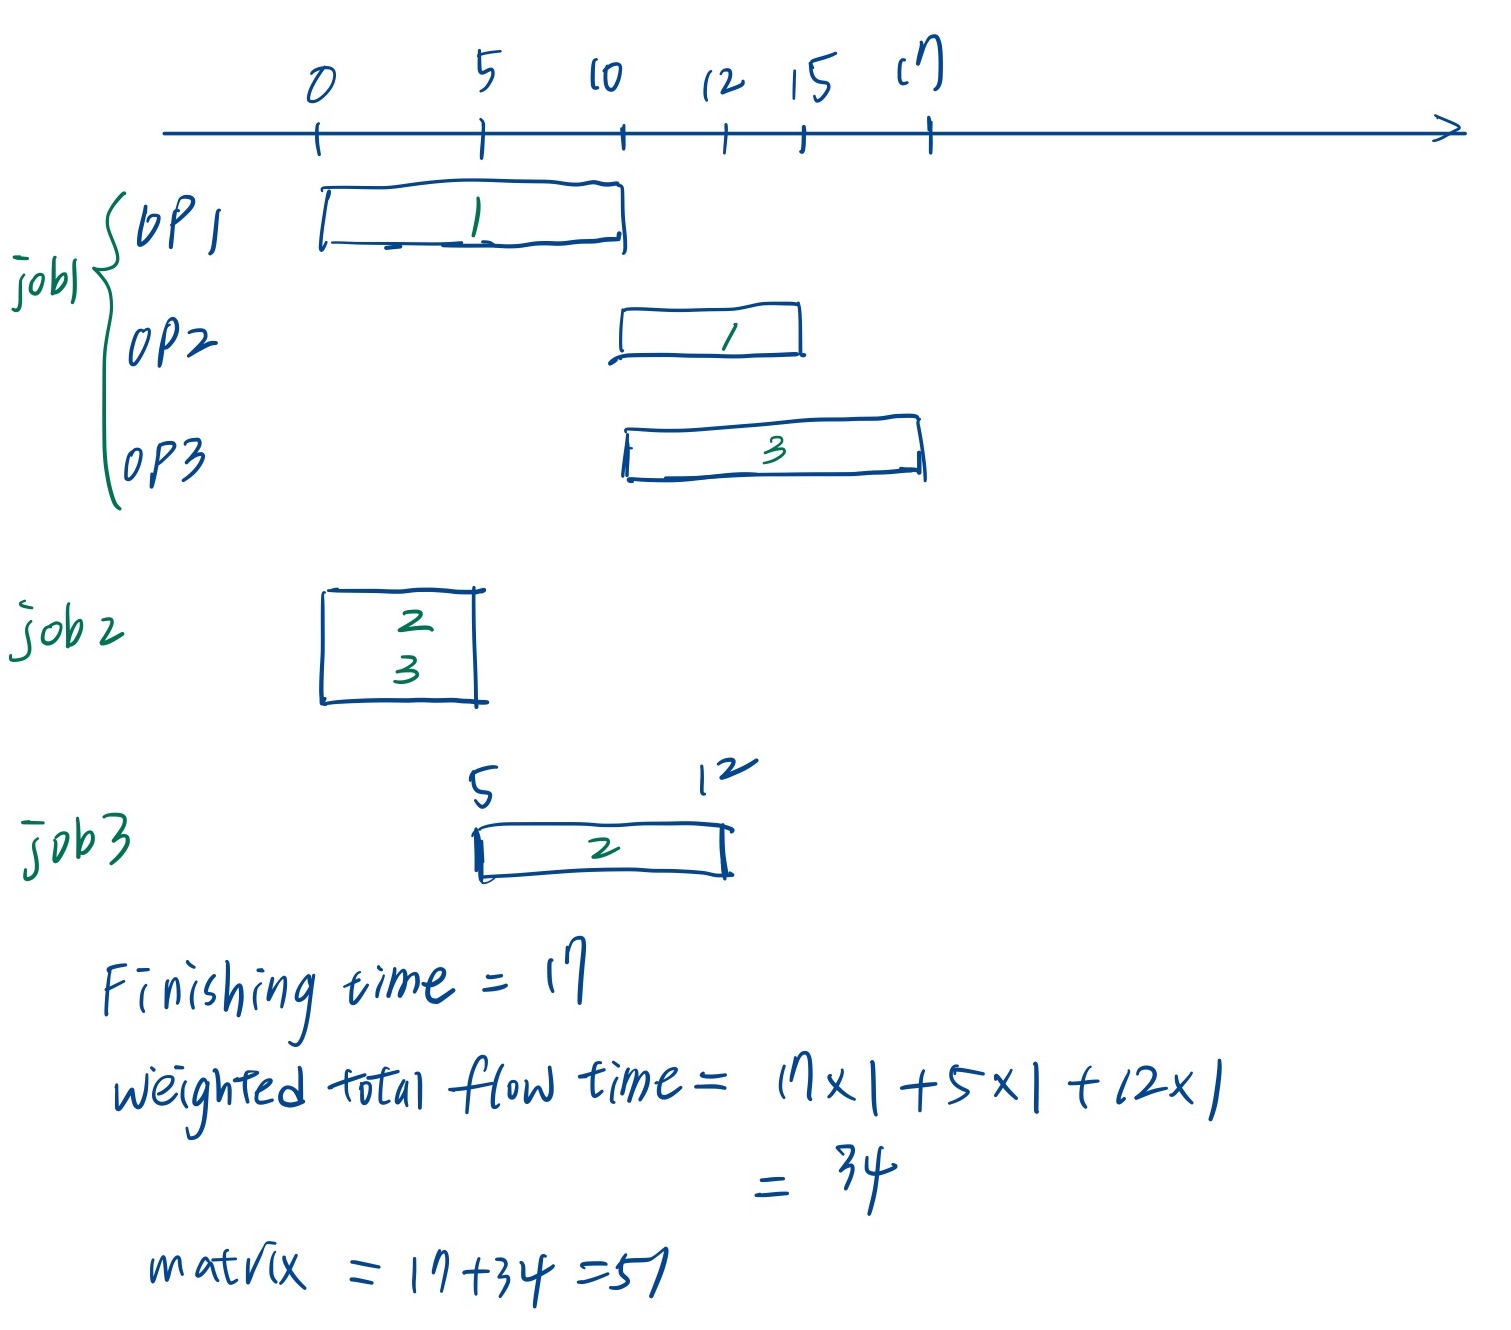 0 5 10 12 15 17
job1
OP1 1
OP2 1
OP3 3
job2
2
3
5 12
job3 2
Finishing time = 17
weighted total flow time = 17x1+5x1+12x1
= 34
matrix = 17+34=51